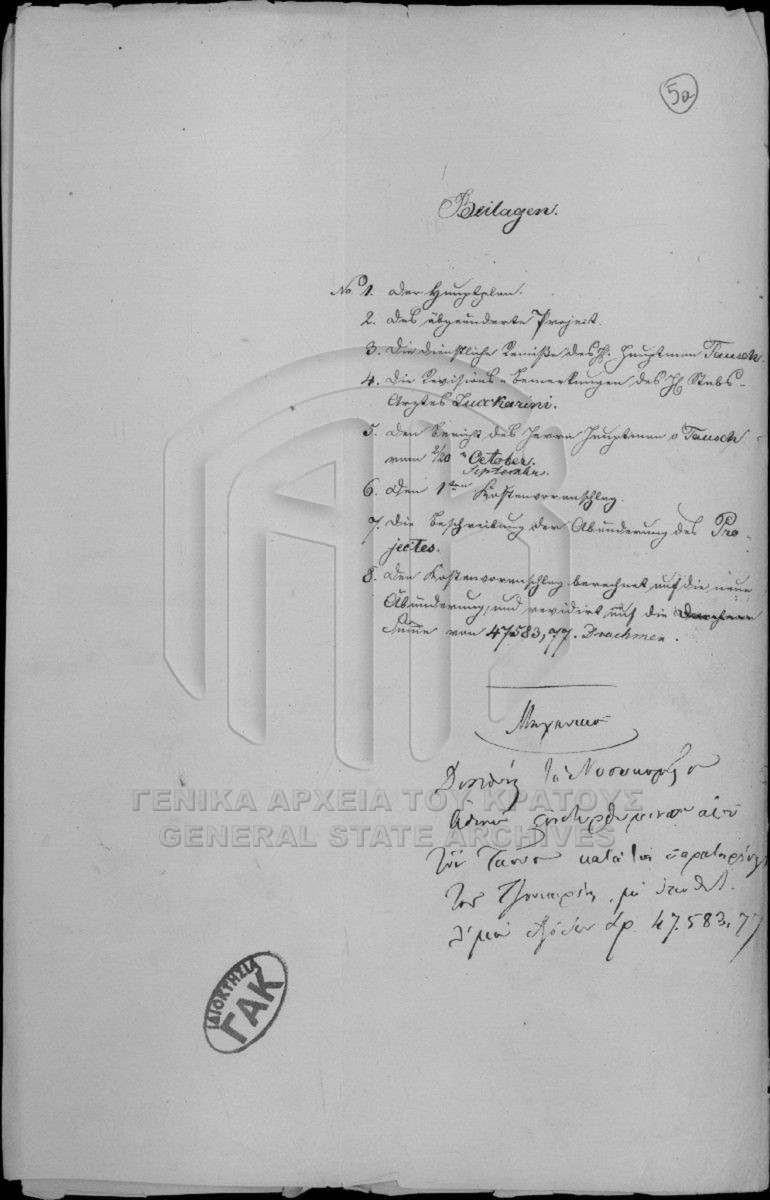 5a
Beilagen.
No 1. Der Hauptplan.
2. Das abgeänderte Project.
3. Die dienstliche Remiße des H. Hauptman Tausch.
4. Die Revisions-bemerkungen des H. Stabs-
Arztes Zuccharini.
5. Den Bericht des Herrn Hauptman v Tausch
vom 2/20 October.
September.
6. Den 1ten Kostenvoranschlag.
7. Die Beschreibung der Abänderung des Pro-
jectes.
8. Den Kostenvoranschlag berechnet auf die neue
Abänderung, und revidirt auf die
Summe von 47583,77. Drachmen.
Μηχανικοῦ
Νοσοκομείου
τοῦ Τάους κατὰ τὰς παρατηρήσεις
τοῦ
δρ. 47.583,77
ΓΕΝΙΚΑ ΑΡΧΕΙΑ ΤΟΥ ΚΡΑΤΟΥΣ
GENERAL STATE ARCHIVES
ΙΔΙΟΚΤΗΣΙΑ
ΓΑΚ